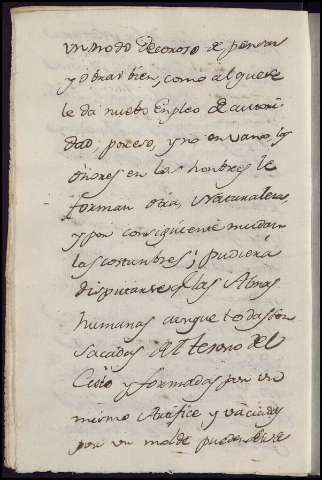 un modo decoroso de pensar
y obrar bien, como al que se
le da nuebo empleo de autori
dad, por eso, y no en vano, los
onores en los hombres le
forman otra Naturaleza,
y por consiguiente mudan
las costumbres; pudiera
disputarse q las Almas
humanas aunque todas son
sacadas del tesoro del
Cielo y formadas por un
mismo Artifice y vaciadas
por un molde pueden